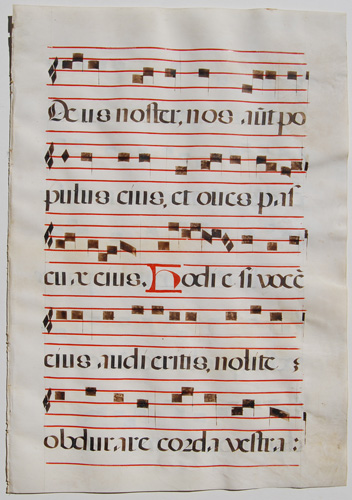 Deus noster, nos aūt po
pulus eius, et oues pas
cuæ eius. Hodi e si vocē
eius audi eritis, nolite
obdurare corda vestra :